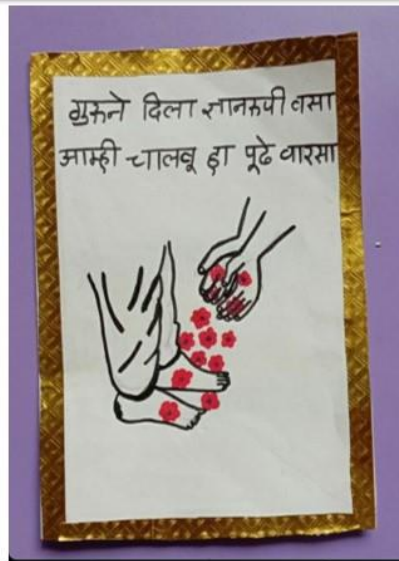 गुरुने दिला ज्ञानरुपी वसा
आम्ही चालवू हा पूढे वारसा